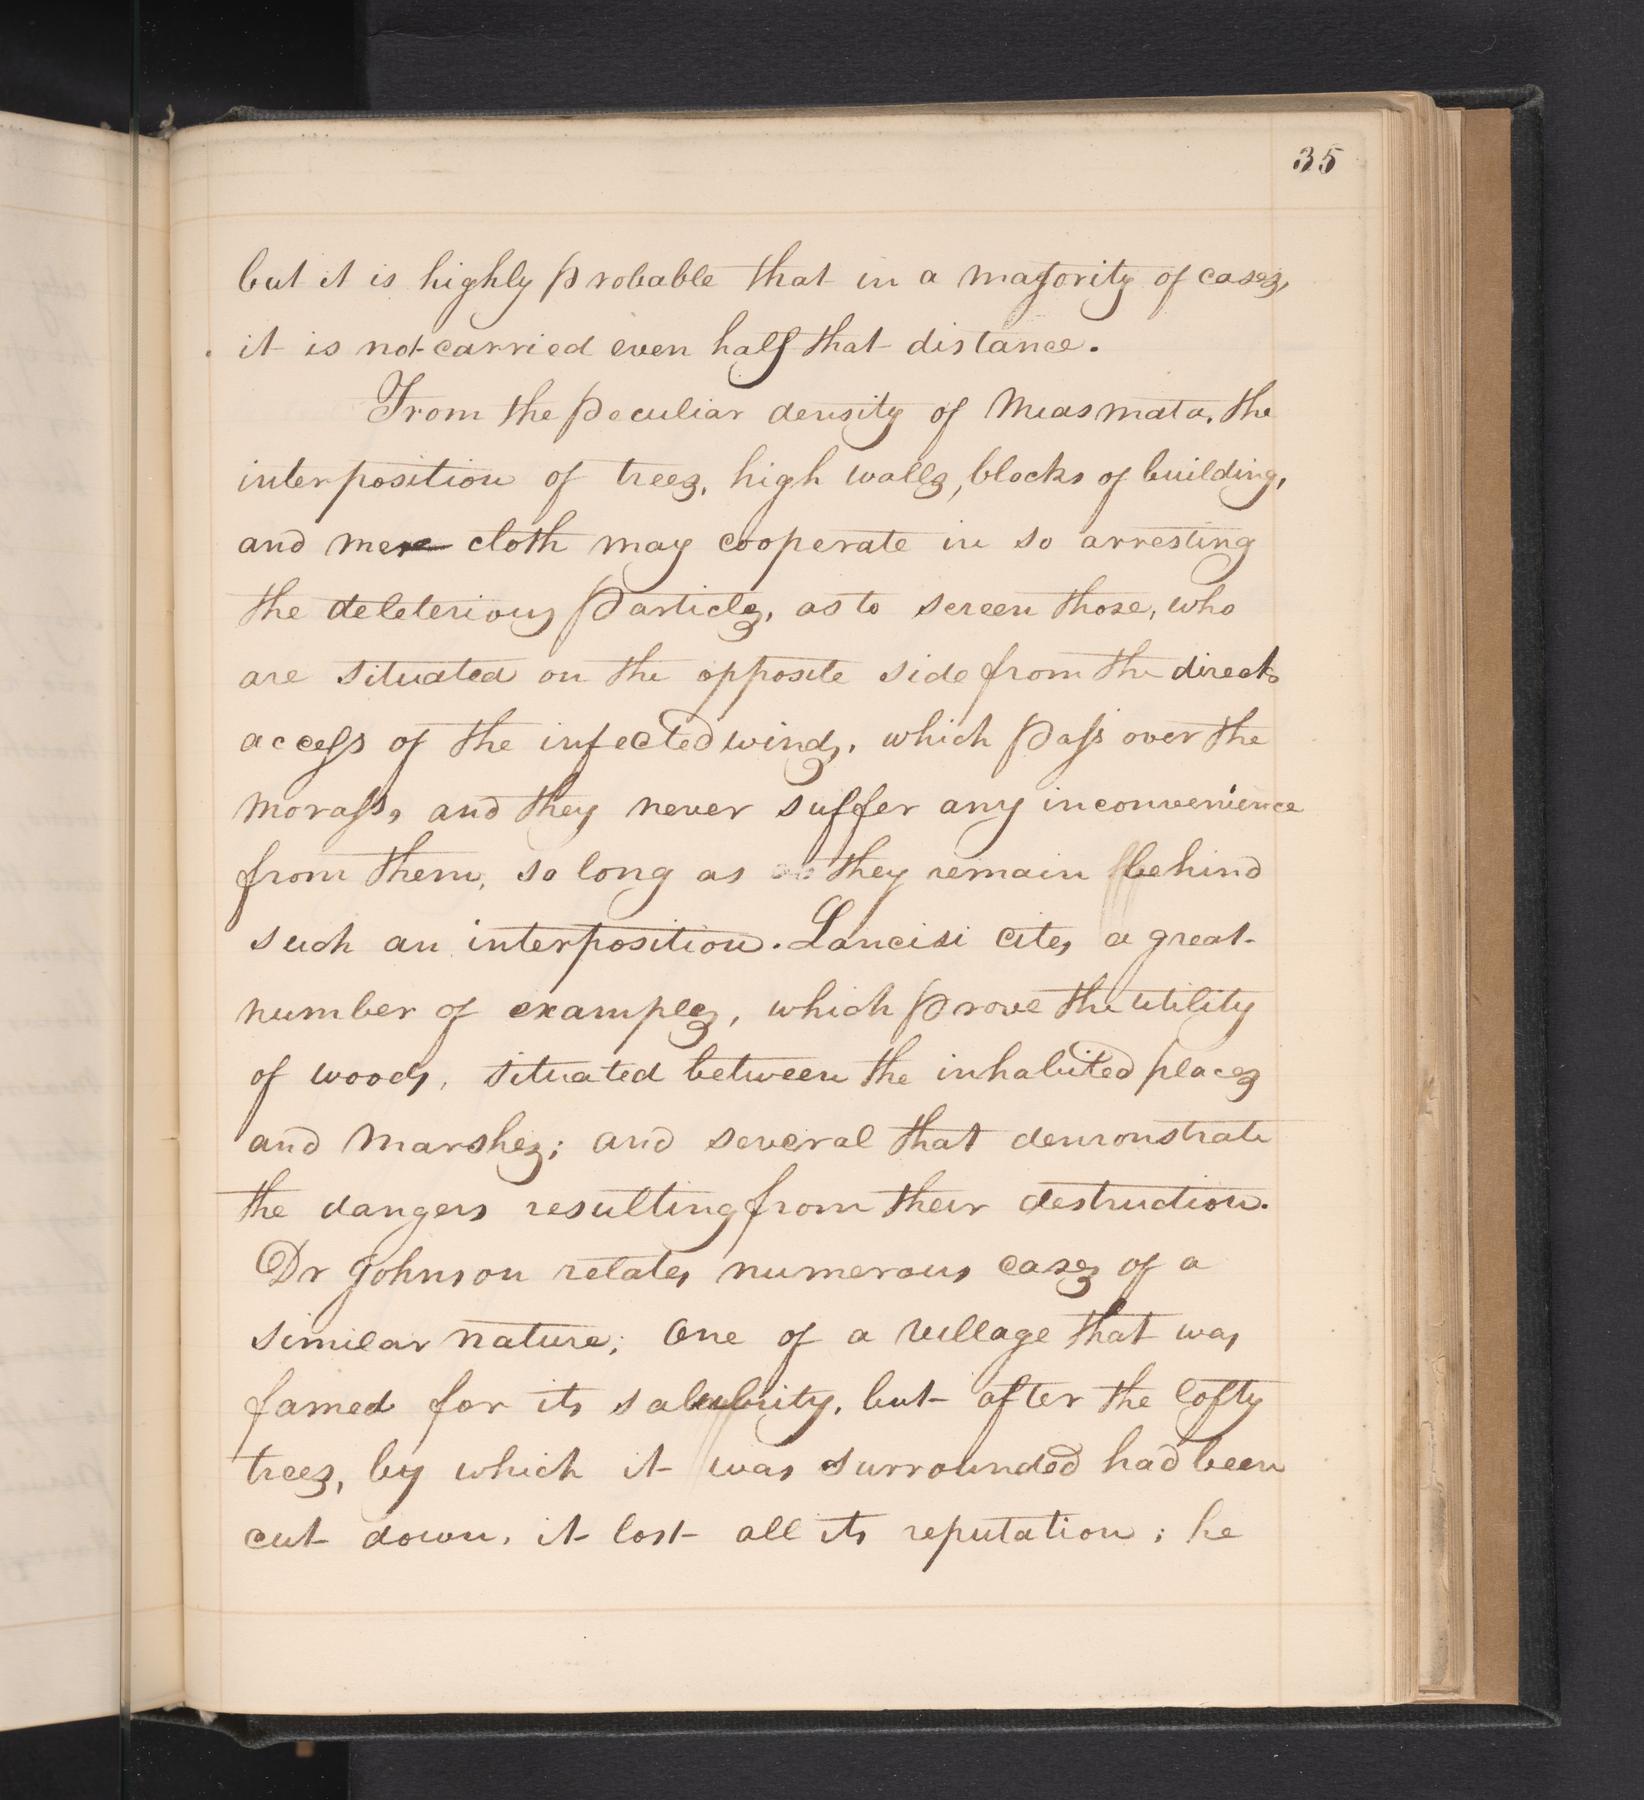 35
but it is highly probable that in a majority of cases,
it is not carried even half that distance.
From the peculiar density of Miasmata, the
interposition of trees, high walls, blocks of building,
and mere cloth may cooperate in so arresting
the deleterious particles, as to screen those, who
are situated on the opposite side from the direct
access of the infected winds, which pass over the
morass, and they never suffer any inconvenience
from them, so long as they remain behind
such an interposition. Lancisi cites a great
number of examples, which prove the utility
of woods, situated between the inhabited places
and Marshes; and several that demonstrate
the dangers resulting from their destruction.
Dr Johnson relates numerous cases of a
similar nature; One of a village that was
famed for its salubrity, but after the lofty
trees, by which it was surrounded had been
cut down, it lost all its reputation; he